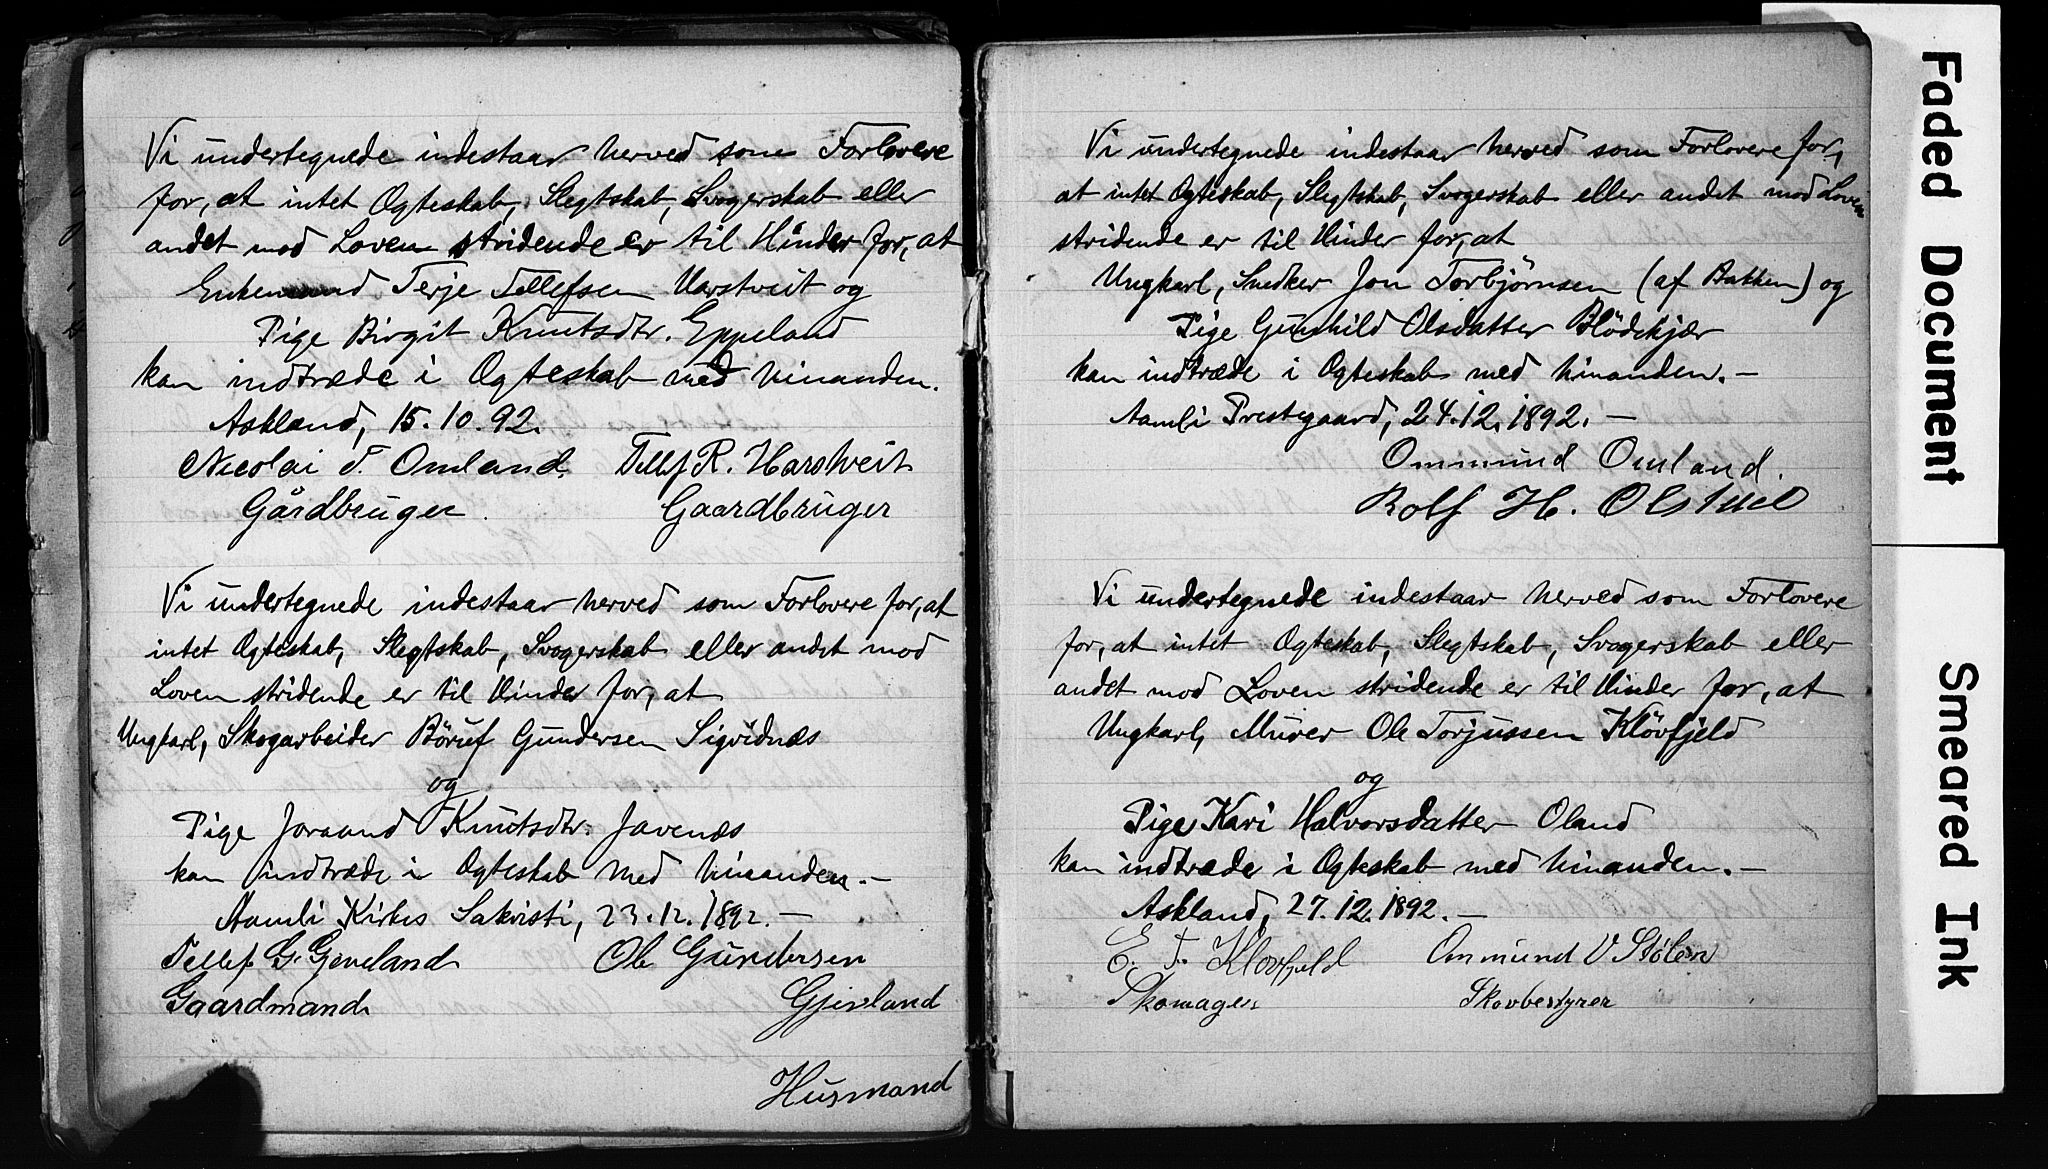 Vi undertegnede indestaar herved som Forlovere
for, at intet Ægteskab, Slegtskab, Svogerskab eller
andet mod Loven stridende er til Hinder for, at
Enkemand Terje Tellefsen Harstveit og
Pige Birgit Knutsdtr. Eppeland
kan indtræde i Ægteskab med hinanden.
Askland, 15.10.92.
Nicolai T. Omland. Tellef R. Harstveit
Gårdbruger. Gaardbruger
Vi undertegnede indestaar herved som Forlovere for, at
intet Ægteskab, Slegtskab, Svogerskab eller andet mod
Loven stridende er til Hinder for, at
Ungkarl, Skogarbeider Böruf Gundersen Sigridnæs
og
Pige Joraand Knutsdtr. Javenæs
kan indtræde i Ægteskab med hinanden. —
Aamli Kirkes Sakristi, 23.12.1892. —
Tellef G. Geveland Ole Gundersen
Gaardmand. Gjevland
Husmand
Vi undertegnede indestaar herved som Forlovere for,
at intet Ægteskab, Slegtskab, Svogerskab eller andet mod Loven
stridende er til Hinder for, at
Ungkarl, Snedker Jon Torbjørnsen (af Bakken) og
Pige Gunhild Olsdatter Blödekjær
kan indtræde i Ægteskab med hinanden. —
Aamli Prestegaard, 24.12.1892. —
Ommund Omland.
Rolf H. Olstveit
Vi undertegnede indestaar herved som Forlovere
for, at intet Ægteskab, Slegtskab, Svogerskab eller
andet mod Loven stridende er til Hinder for, at
Ungkarl, Murer Ole Torjussen Klövfjeld
og
Pige Kari Halvorsdatter Oland
kan indtræde i Ægteskab med hinanden. —
Askland, 27.12.1892. —
E. T. Klovfjeld Ommund V. Stølen
Skomager Skovbestyrer
Faded Document
Smeared Ink